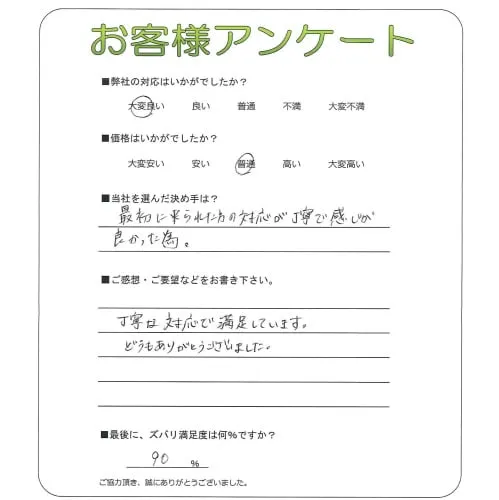 お客様アンケート
■弊社の対応はいかがでしたか?
大変良い 良い 普通 不満 大変不満
■価格はいかがでしたか?
大変安い 安い 普通 高い 大変高い
■当社を選んだ決め手は?
最初に来られた方の対応が丁寧で感じが
良かった為。
■ご感想・ご要望などをお書き下さい。
丁寧な対応で満足しています。
どうもありがとうございました。
■最後に、ズバリ満足度は何%ですか?
90 %
ご協力頂き、誠にありがとうございました。